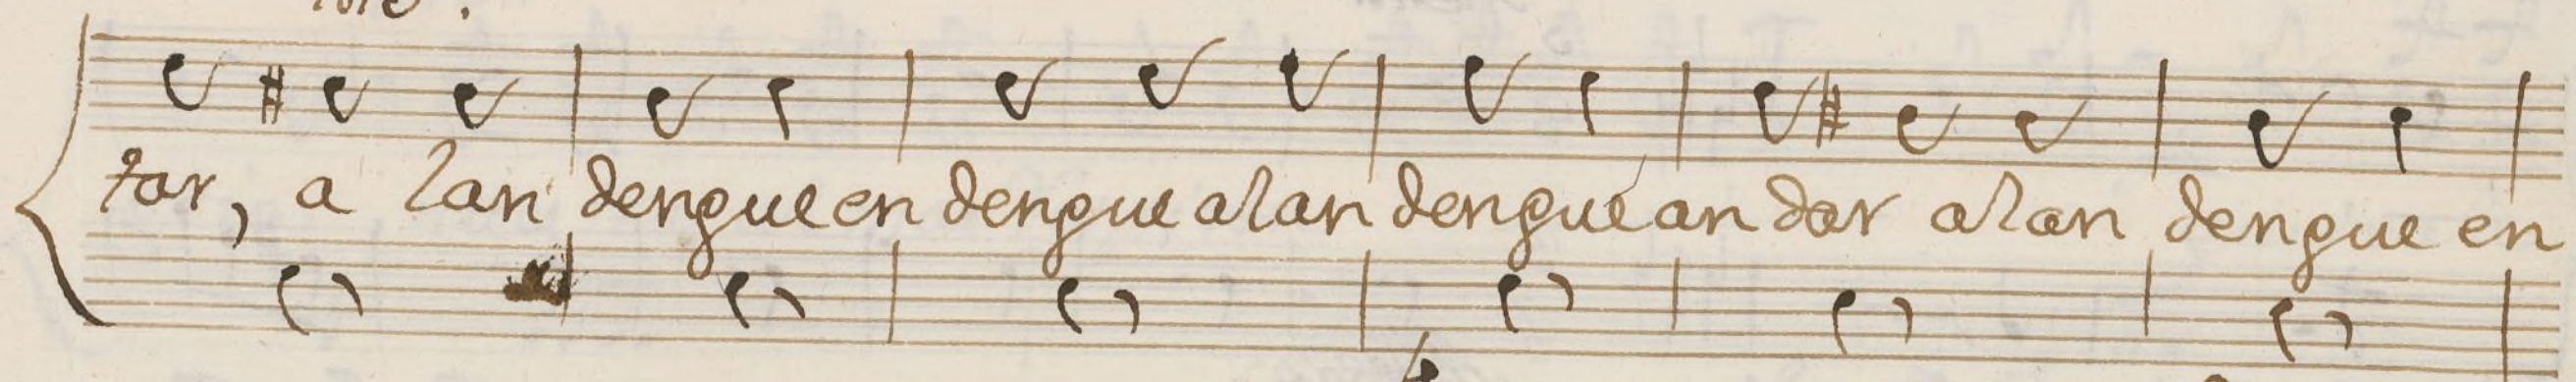 tar, a lan dengue en dengue a lan dengue an dar a lan dengue en